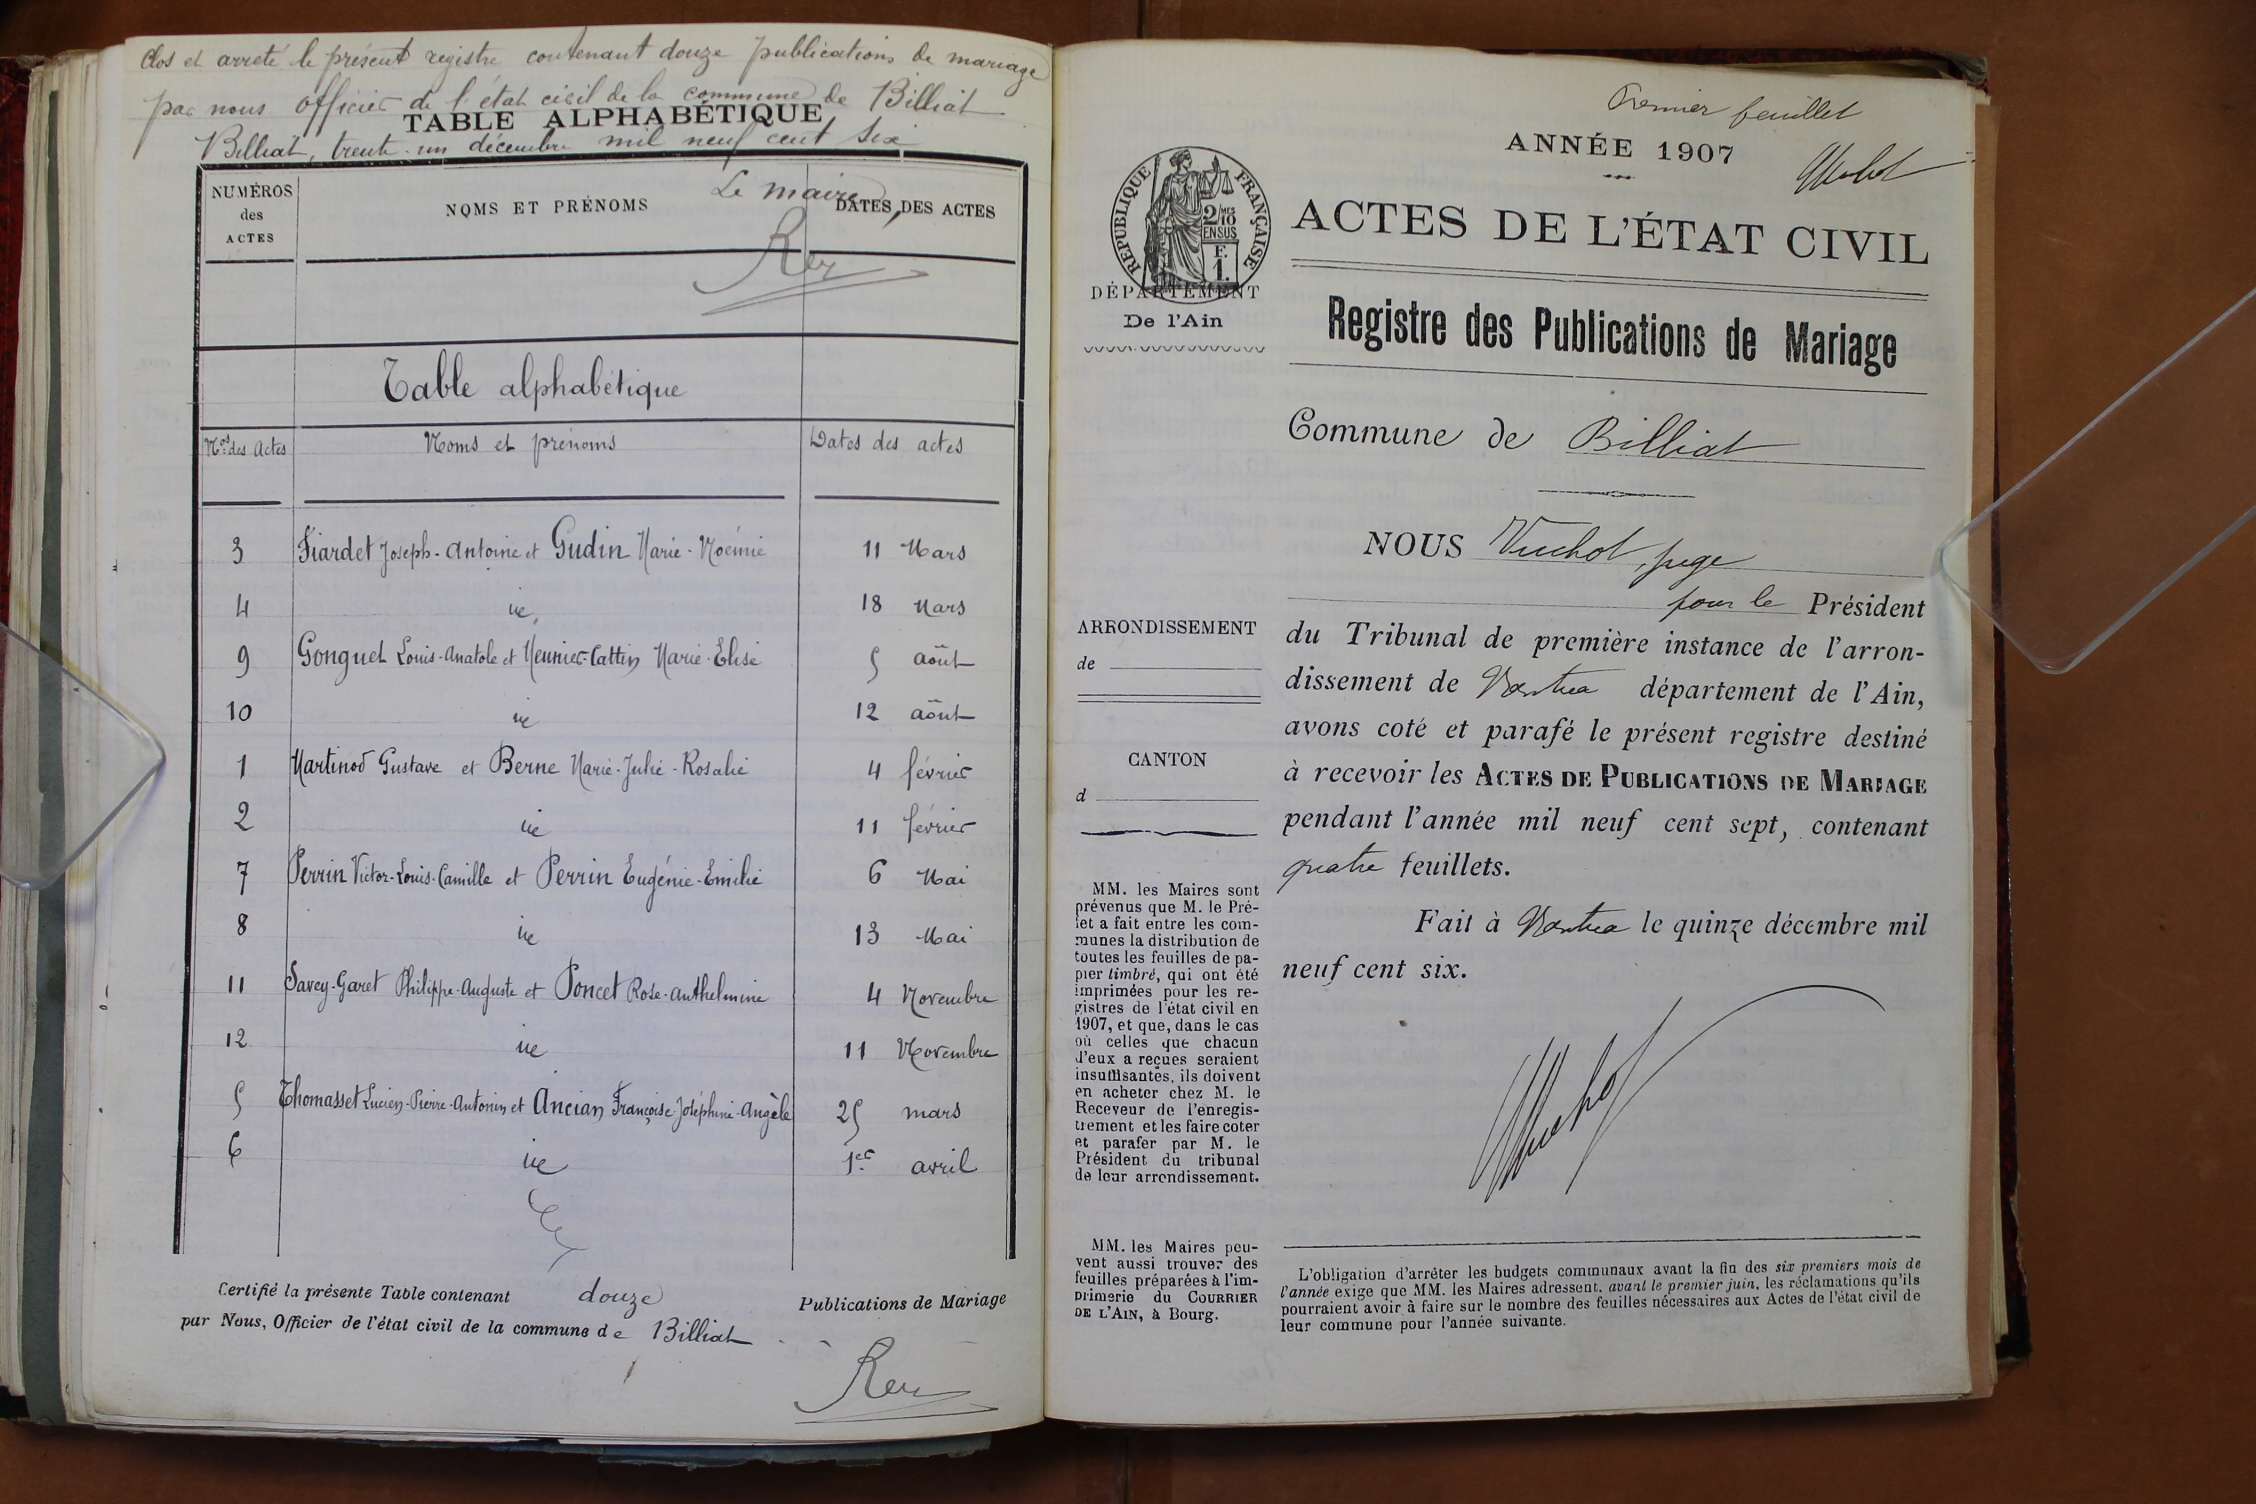 Clos et arrêté le présent registre contenant douze publications de mariage
par nous officier de l'état civil de la commune de Billiat
TABLE ALPHABÉTIQUE
Billiat, trente-un décembre mil neuf cent six
Le maire,
NUMÉROS des ACTES
NOMS ET PRÉNOMS
DATES DES ACTES
Rey
Table alphabétique
Nos des Actes Noms et prénoms Dates des actes
3 Fiardet Joseph-Antoine et Gudin Marie-Noémie 11 Mars
4 id 18 Mars
9 Gonguet Louis-Anatole et Meunier-Cattin Marie-Elise 5 août
10 id 12 août
1 Martinod Gustave et Berne Marie-Julie-Rosalie 4 février
2 id 11 février
7 Perrin Victor-Louis-Camille et Perrin Eugénie-Emilie 6 Mai
8 id 13 Mai
11 Savey-Garet Philippe-Auguste et Poncet Rose-Anthelmine 4 Novembre
12 id 11 Novembre
5 Thomasset Lucien-Pierre-Antonin et Ancian Françoise-Joséphine-Angèle 25 mars
6 id 1er avril
Certifié la présente Table contenant douze Publications de Mariage
par Nous, Officier de l'état civil de la commune de Billiat
Rey
Premier feuillet
ANNÉE 1907
Vuchot
RÉPUBLIQUE FRANÇAISE
2/10MES
ENSUS
F.
1.
DÉPARTEMENT
De l'Ain
ACTES DE L'ÉTAT CIVIL
Registre des Publications de Mariage
Commune de Billiat
NOUS Vuchot, juge
pour le Président
du Tribunal de première instance de l'arron-
dissement de Nantua département de l'Ain,
avons coté et parafé le présent registre destiné
à recevoir les ACTES DE PUBLICATIONS DE MARIAGE
pendant l'année mil neuf cent sept, contenant
quatre feuillets.
Fait à Nantua le quinze décembre mil
neuf cent six.
Vuchot
ARRONDISSEMENT
de
CANTON
d
MM. les Maires sont
prévenus que M. le Pré-
fet a fait entre les com-
munes la distribution de
toutes les feuilles de pa-
pier timbré, qui ont été
imprimées pour les re-
gistres de l'état civil en
1907, et que, dans le cas
où celles que chacun
d'eux a reçues seraient
insuffisantes, ils doivent
en acheter chez M. le
Receveur de l'enregis-
trement et les faire coter
et parafer par M. le
Président du tribunal
de leur arrondissement.
MM. les Maires peu-
vent aussi trouver des
feuilles préparées à l'im-
primerie du COURRIER
DE L'AIN, à Bourg.
L'obligation d'arrêter les budgets communaux avant la fin des six premiers mois de
l'année exige que MM. les Maires adressent, avant le premier juin, les réclamations qu'ils
pourraient avoir à faire sur le nombre des feuilles nécessaires aux Actes de l'état civil de
leur commune pour l'année suivante.